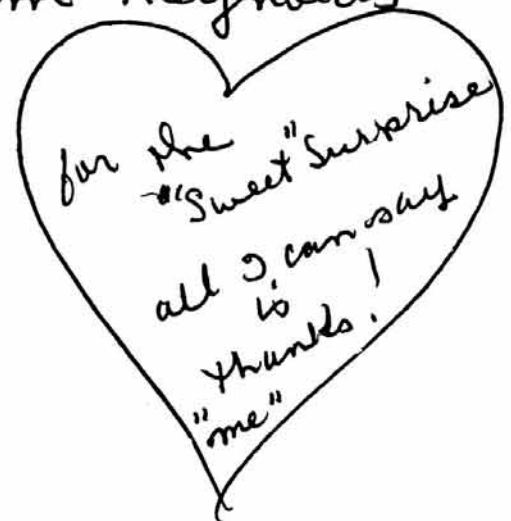 Reynolds
for the
"Sweet" Surprise
all I can say
is
thanks!
"me"